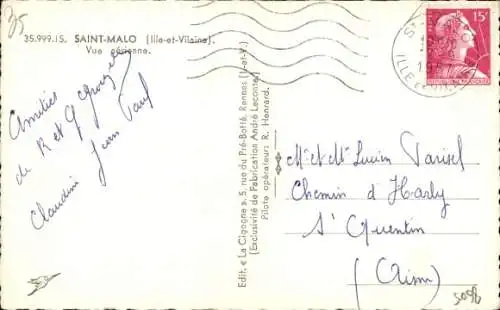 35
35.999.IS. SAINT-MALO (Ille-et-Vilaine).
Vue aérienne.
Amitiés
de R et G
Claudine Jean Paul
Edit. « La Cigogne », 5, rue du Pré-Botté, Rennes (I.-et-V.)
(Exclusivité de Fabrication André Leconte)
Pilote opérateur: R. Henrard.
15F
ILLE ET
Mr et Me Lucien Parisel
Chemin d'Harly
St Quentin
(Aisne)
5098